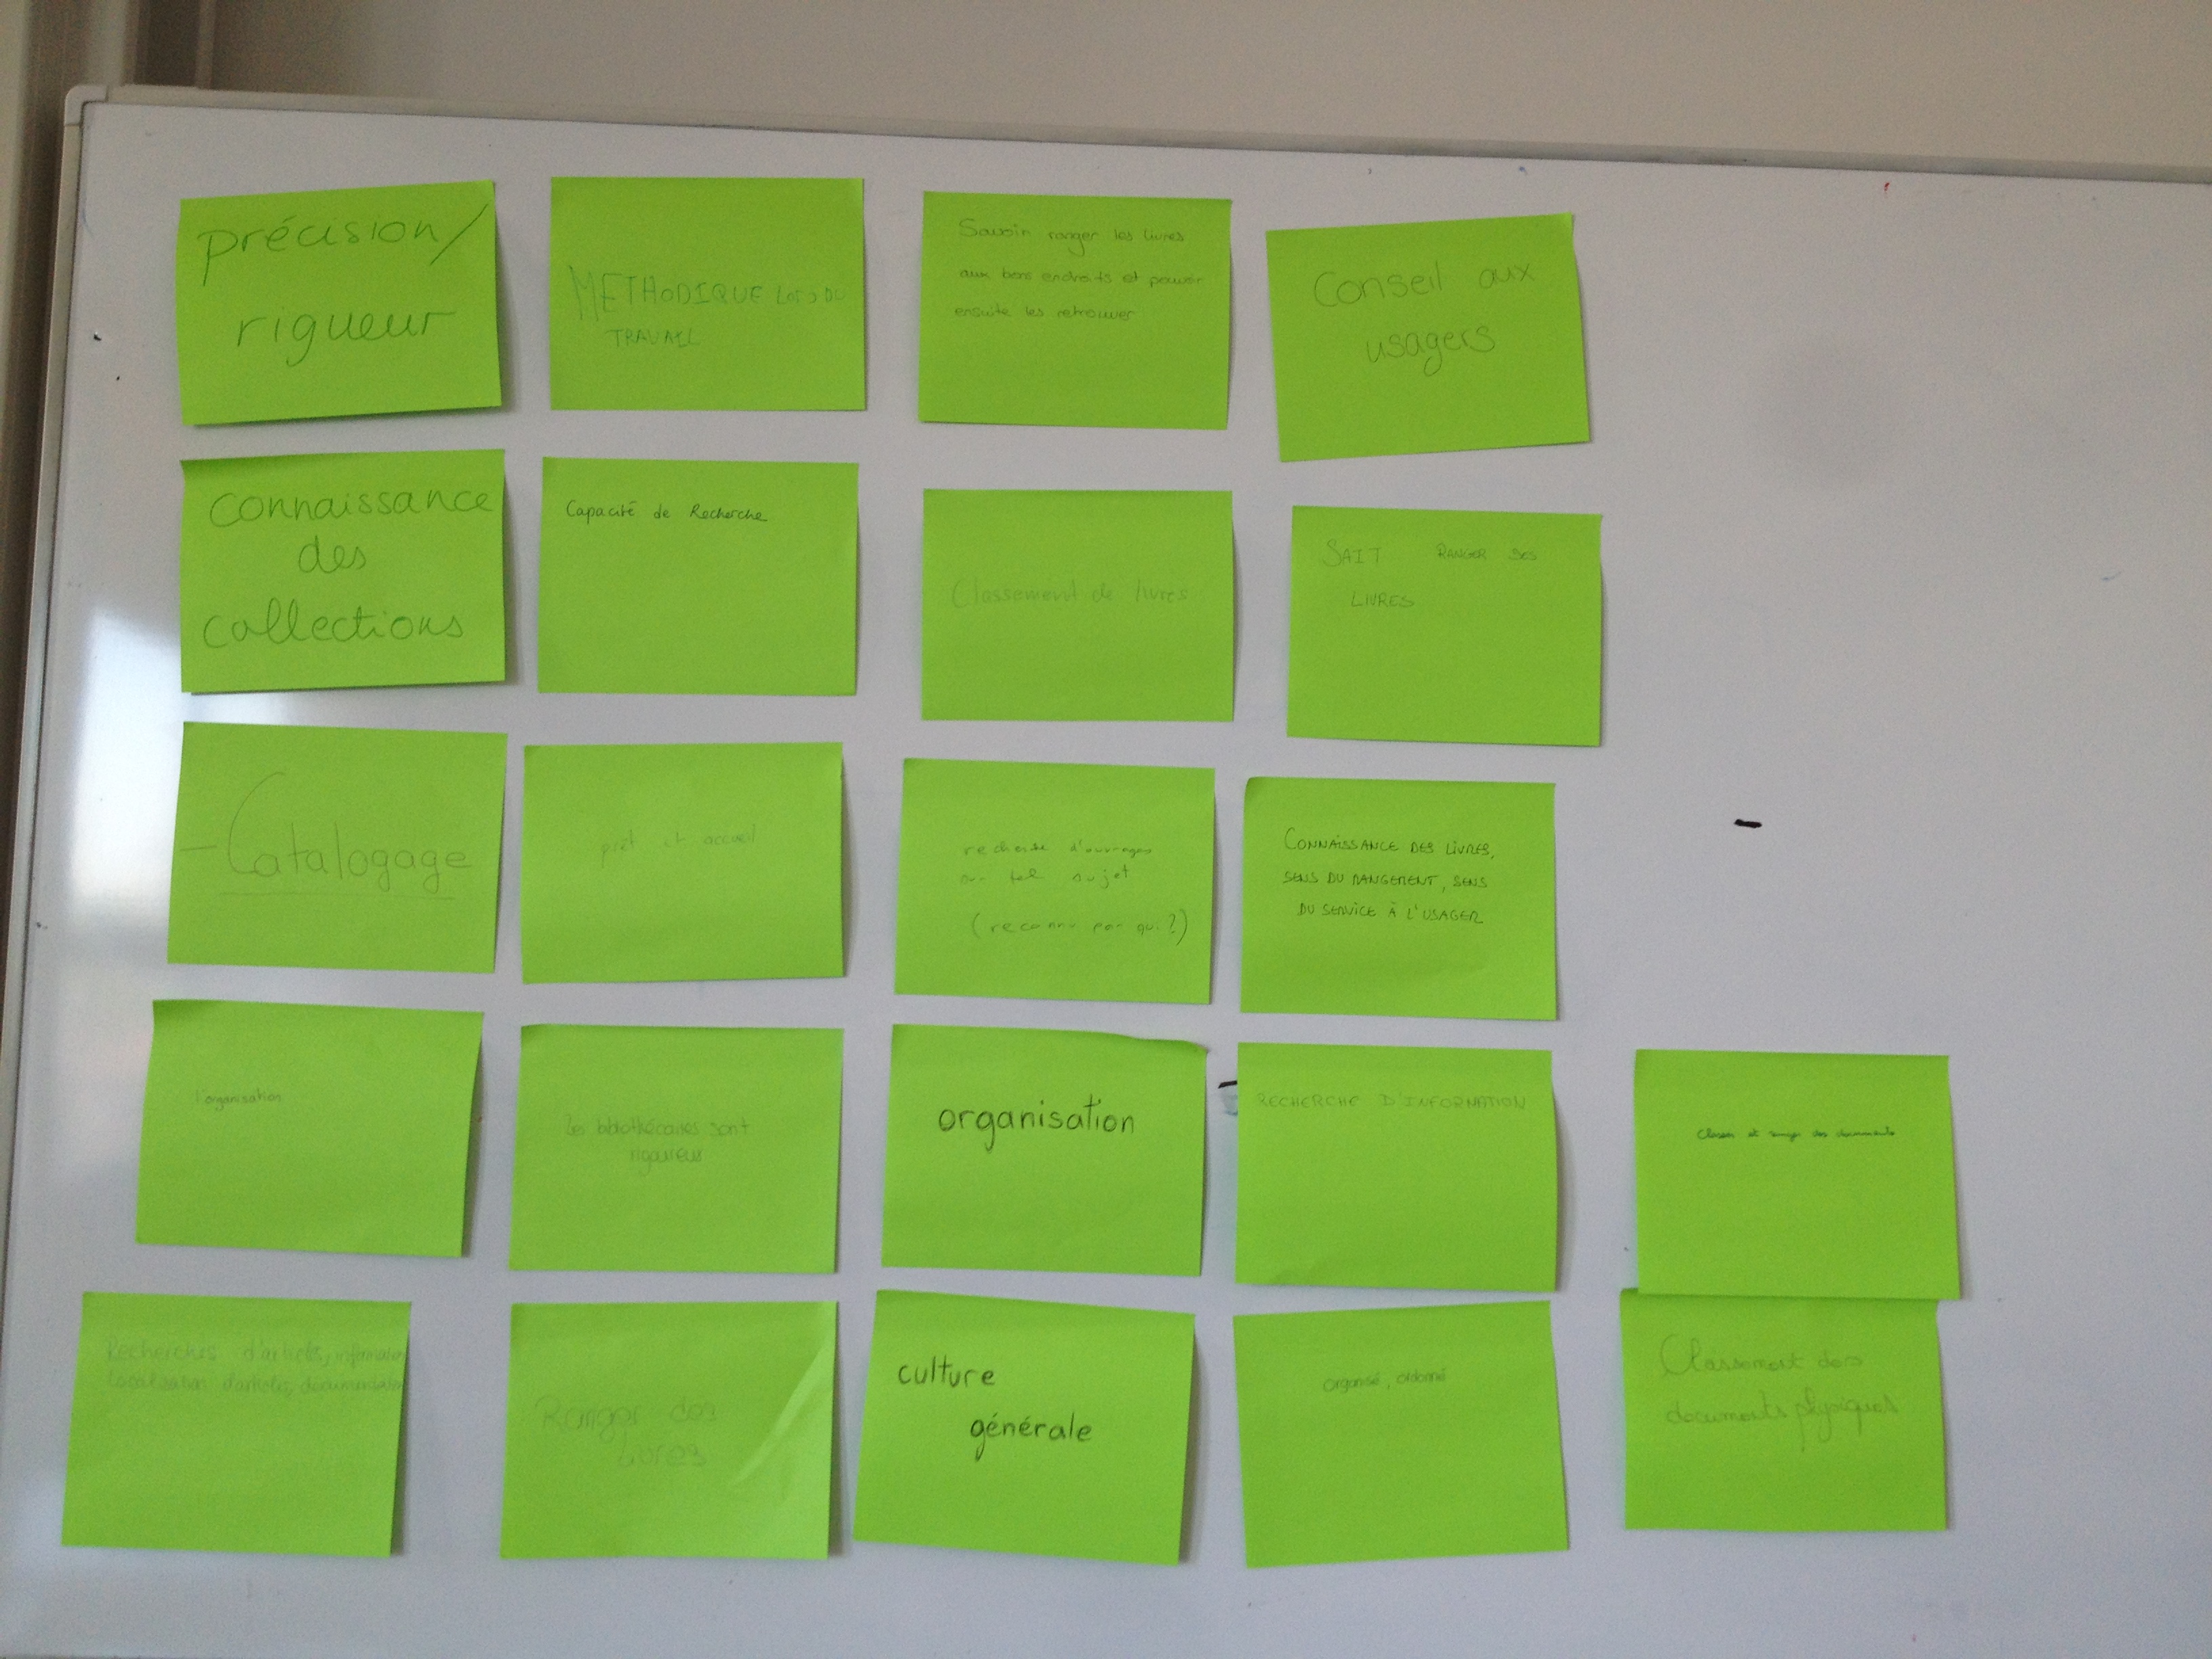 précision/
rigueur
METHODIQUE LORS DU
TRAVAIL
Savoir ranger les livres
aux bons endroits et pouvoir
ensuite les retrouver
Conseil aux
usagers
connaissance
des
collections
Capacité de Recherche
Classement de livres
SAIT RANGER DES
LIVRES
- Catalogage
prêt et accueil
recherche d'ouvrages
sur tel sujet
(reconnu par qui?)
CONNAISSANCE DES LIVRES,
SENS DU RANGEMENT, SENS
DU SERVICE À L'USAGER
l'organisation
Les bibliothécaires sont
organisation
RECHERCHE D'INFORMATION
Classer et ranger des documents
Recherches d'articles, information
Localisation d'articles,
Ranger des
livres
culture
générale
organisé, ordonné
Classement des
documents physiques